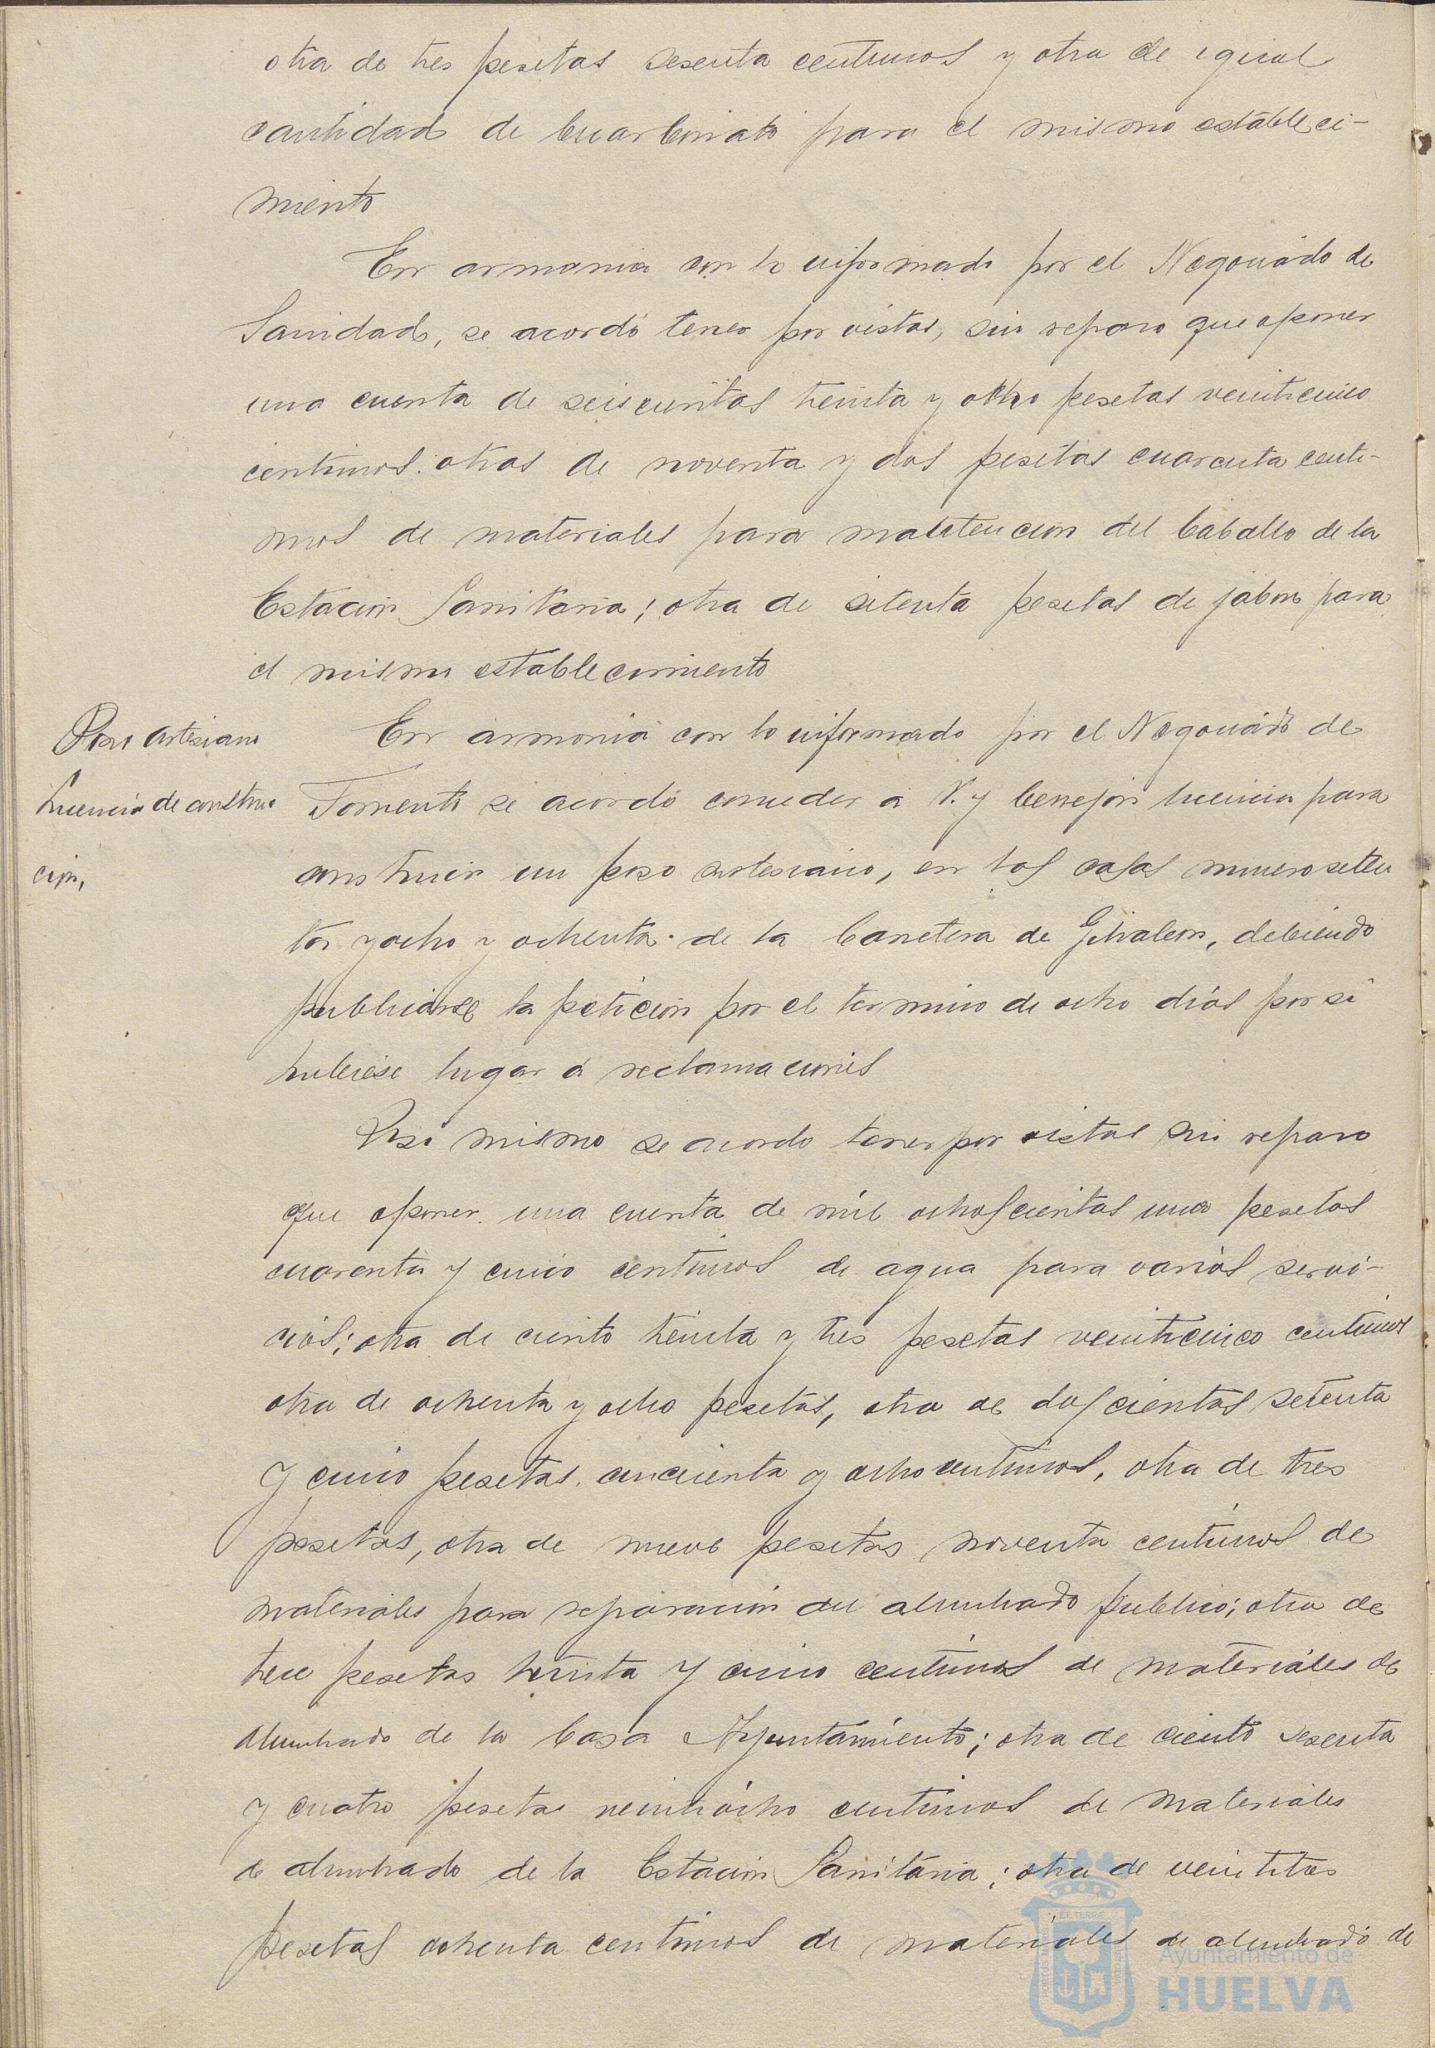 otra de tres pesetas sesenta centimos y otra de igual
cantidad de bicarbonato para el mismo estableci-
miento
En armonia con lo informado por el Negociado de
Sanidad, se acordó tener por vistas, sin reparo que oponer
una cuenta de seiscientas treinta y ocho pesetas veinticinco
centimos: otras de noventa y dos pesetas cuarenta centi-
mos de materiales para manutencion del Caballo de la
Estación Sanitaria; otra de setenta pesetas de jabon para
el mismo establecimiento
Poso artesiano
Licencia de constru
cion,
En armonia con lo informado por el Negociado de
Fomento se acordó conceder a V. y Cerrejon licencia para
construir un poso artesiano, en las casas numero seten
ta y ocho y ochenta de la Carretera de Gibraleon, debiendo
publicarse la petición por el termino de ocho días por si
hubiese lugar á reclamaciones
Asi mismo se acordo tener por vistas sin reparo
que oponer una cuenta de mil ochoscientas una pesetas
cuarenta y cinco centimos de agua para varios servi-
cios; otra de ciento treinta y tres pesetas veinticinco centimos
otra de ochenta y ocho pesetas, otra de doscientas setenta
y cinco pesetas cincuenta y ocho centimos, otra de tres
pesetas, otra de nueve pesetas noventa centimos de
materiales para reparación del alumbrado publico; otra de
trece pesetas treinta y cinco centimos de materiales de
alumbrado de la Casa Ayuntamiento; otra de ciento sesenta
y cuatro pesetas veintiocho centimos de materiales
de alumbrado de la Estación Sanitaria; otra de veintitres
pesetas ochenta centimos de materiales de alumbrado de
Ayuntamiento de
HUELVA